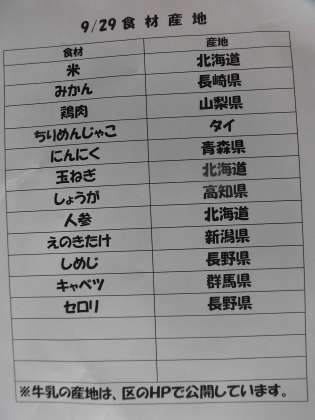 9/29 食材産地
食材 産地
米 北海道
みかん 長崎県
鶏肉 山梨県
ちりめんじゃこ タイ
にんにく 青森県
玉ねぎ 北海道
しょうが 高知県
人参 北海道
えのきたけ 新潟県
しめじ 長野県
キャベツ 群馬県
セロリ 長野県
※牛乳の産地は、区のHPで公開しています。